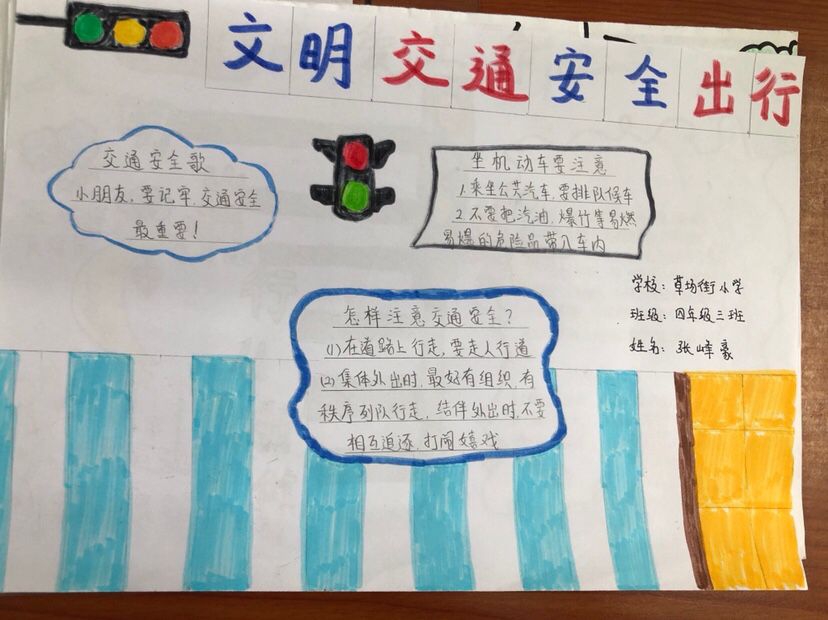 文明交通安全出行
交通安全歌
小朋友,要记牢,交通安全
最重要!
坐机动车要注意
1.乘坐公共汽车,要排队候车
2.不要把汽油,爆竹等易燃
易爆的危险品带入车内
学校:草场街小学
班级:四年级三班
姓名:张峰豪
怎样注意交通安全?
(1)在道路上行走,要走人行道
(2)集体外出时,最好有组织,有
秩序列队行走,结伴外出时,不要
相互追逐,打闹嬉戏